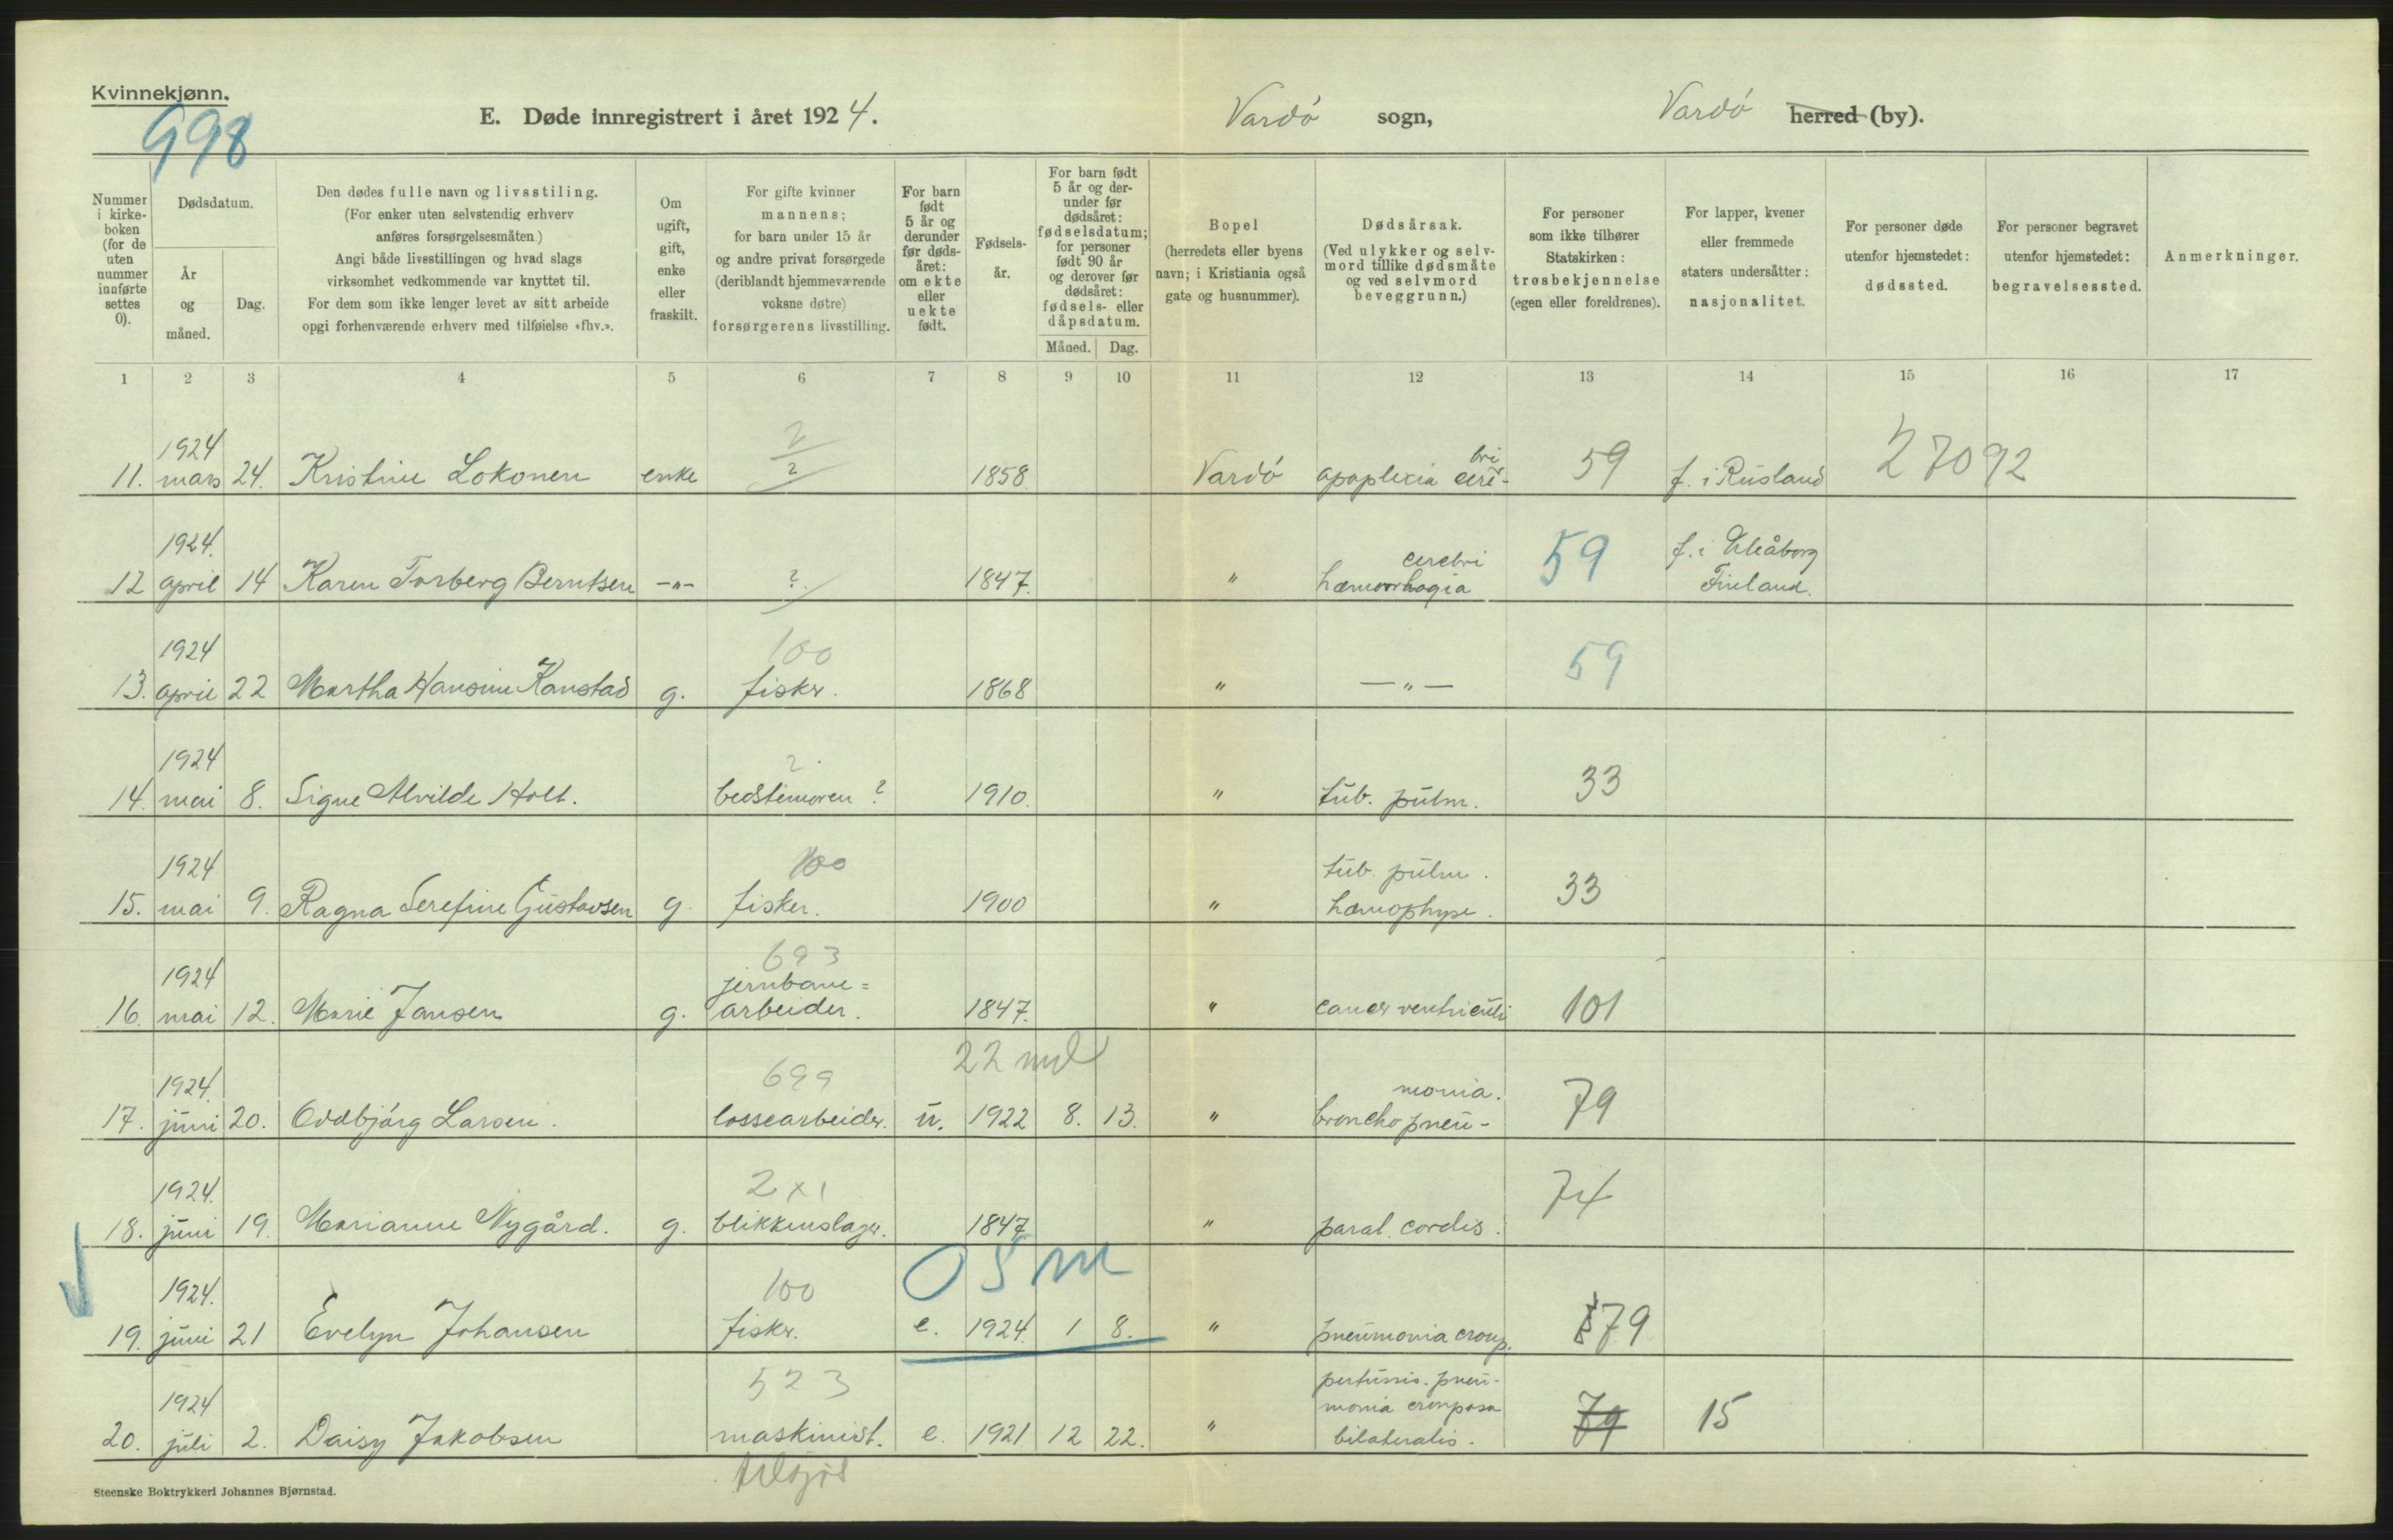 Kvinnekjønn.
998
E. Døde innregistrert i året 1924.
Vardö sogn,
Vardö herred (by).
Nummer i kirke-boken (for de uten nummer innførte settes 0).
Dødsdatum.
År og måned.
Dag.
Den dødes fulle navn og livsstiling.
(For enker uten selvstendig erhverv
anføres forsørgelsesmåten.)
Angi både livsstillingen og hvad slags
virksomhet vedkommende var knyttet til.
For dem som ikke lenger levet av sitt arbeide
opgi forhenværende erhverv med tilføielse «fhv.».
Om ugift, gift, enke eller fraskilt.
For gifte kvinner
mannens;
for barn under 15 år
og andre privat forsørgede
(deriblandt hjemmeværende
voksne døtre)
forsørgerens livsstilling.
For barn født 5 år og derunder før døds-året: om ekte eller uekte født.
Fødsels-år.
For barn født 5 år og der-under før dødsåret: fødselsdatum; for personer født 90 år og derover før dødsåret: fødsels- eller dåpsdatum.
Måned. Dag.
Bopel
(herredets eller byens
navn; i Kristiania også
gate og husnummer).
Dødsårsak.
(Ved ulykker og selv-
mord tillike dødsmåte
og ved selvmord
beveggrunn.)
For personer
som ikke tilhører
Statskirken:
trosbekjennelse
(egen eller foreldrenes).
For lapper, kvener
eller fremmede
staters undersåtter:
nasjonalitet.
For personer døde
utenfor hjemstedet:
dødssted.
For personer begravet
utenfor hjemstedet:
begravelsessted.
Anmerkninger.
1 2 3 4 5 6 7 8 9 10 11 12 13 14 15 16 17
1924 2 bri
11. mars 24. Kristine Lokonen enke ? 1858. Vardö apoplexia cere- 59 f. i Rusland 27092
1924. cerebri f. i Uleåborg
12 april 14 Karen Torberg Berntsen -"- ?. 1847. " hæmorrhagia 59 Finland.
1924 100
13. april 22 Martha Hansine Kanstad g. fisker. 1868 " -"- 59
1924 ?
14. mai 8. Signe Alvilde Holt. bedstemoren ? 1910. " tub. pulm. 33
1924 100 tub. pulm.
15. mai 9. Ragna Serefine Gustavsen g. fisker. 1900 " hæmophyse. 33
1924 693 jernbane=
16. mai 12. Marie Jansen g. arbeider. 1847. " cancer ventriculi 101
1924. 699 22 md monia.
17. juni 20. Oddbjörg Larsen. lossearbeider. u. 1922 8. 13. " bronchopneu- 79
1924. 2x1
18. juni 19. Marianne Nygård. g. blikkenslager. 1847 " paral. cordis. 74
1924. 100 05 m
19. juni 21 Evelyn Johansen fisker. e. 1924. 1 8. " pneumonia croup. 79
1924 523 pertussis. pneu-
monia crouposa
20. juli 2. Daisy Jakobsen maskinist. e. 1921 12 22. " bilateralis. 79 15
Steenske Boktrykkeri Johannes Bjørnstad.